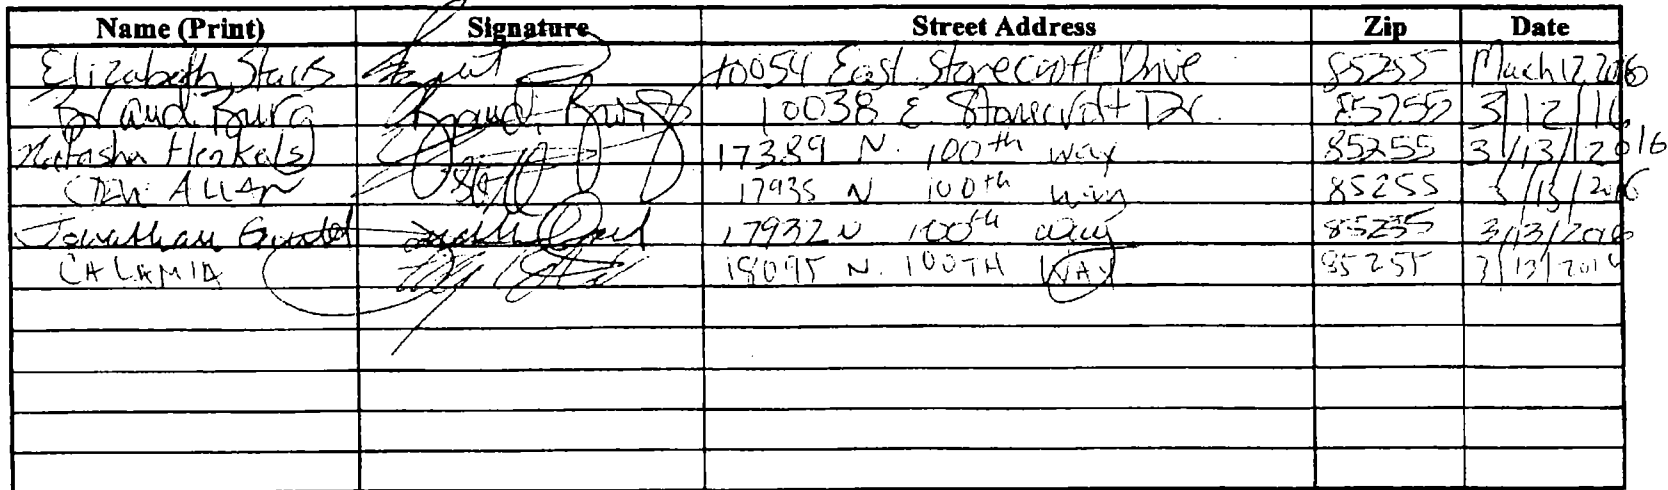 Name (Print) Signature Street Address Zip Date
Elizabeth 10054 East Stonecroft Drive 85255 March 12 2016
Brandi Burg Brandi Burg 10038 E Stonecroft Dr. 85255 3/12/16
Natasha 17389 N. 100th way 85255 3/13/2016
ALLAN 17935 N 100th way 85255 3/13/2016
Jonathan 17932 N 100th Way 85255 3/13/2016
CALAMIA 18095 N. 100TH WAY 85255 3/13/2016